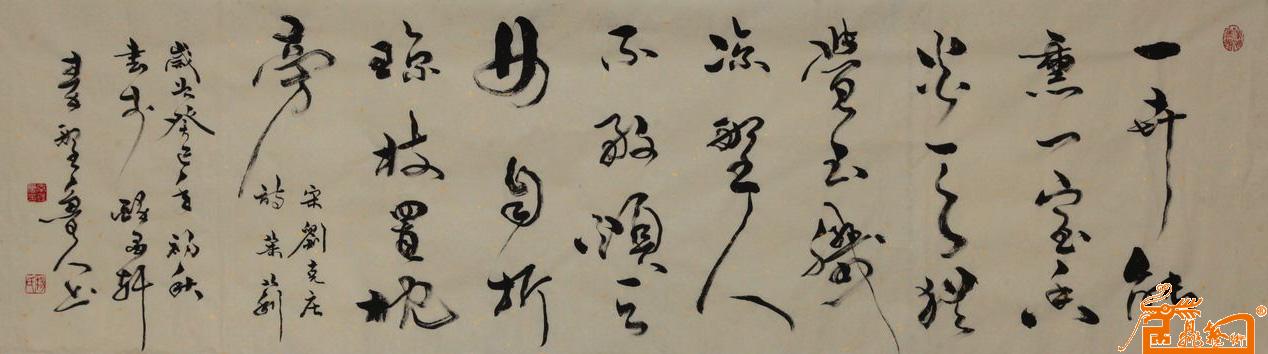 一卉能
熏一室香
炎天犹
觉玉肌
凉野人
不敢烦天
女自折
琼枝置枕
旁
宋刘克庄
诗茉莉
岁次癸巳年初秋
书于轩
野鲁人书